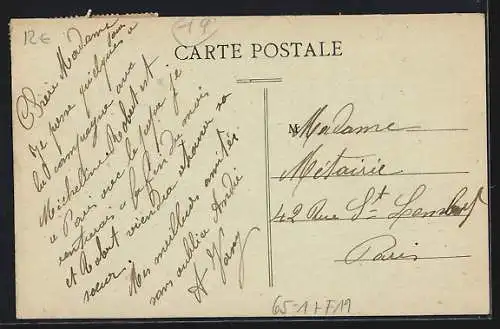 12€
CARTE POSTALE
Chère Madame
Je passe quelques jours à
la campagne avec
Micheline Robert et
à Paris avec le
rentrerais à la fin du mois
et Robert viendra chercher sa
sœur.
Mes meilleurs amitiés
sans oublier André
A
M
Madame
Métairie
42 Rue St
Paris
65-1+F19